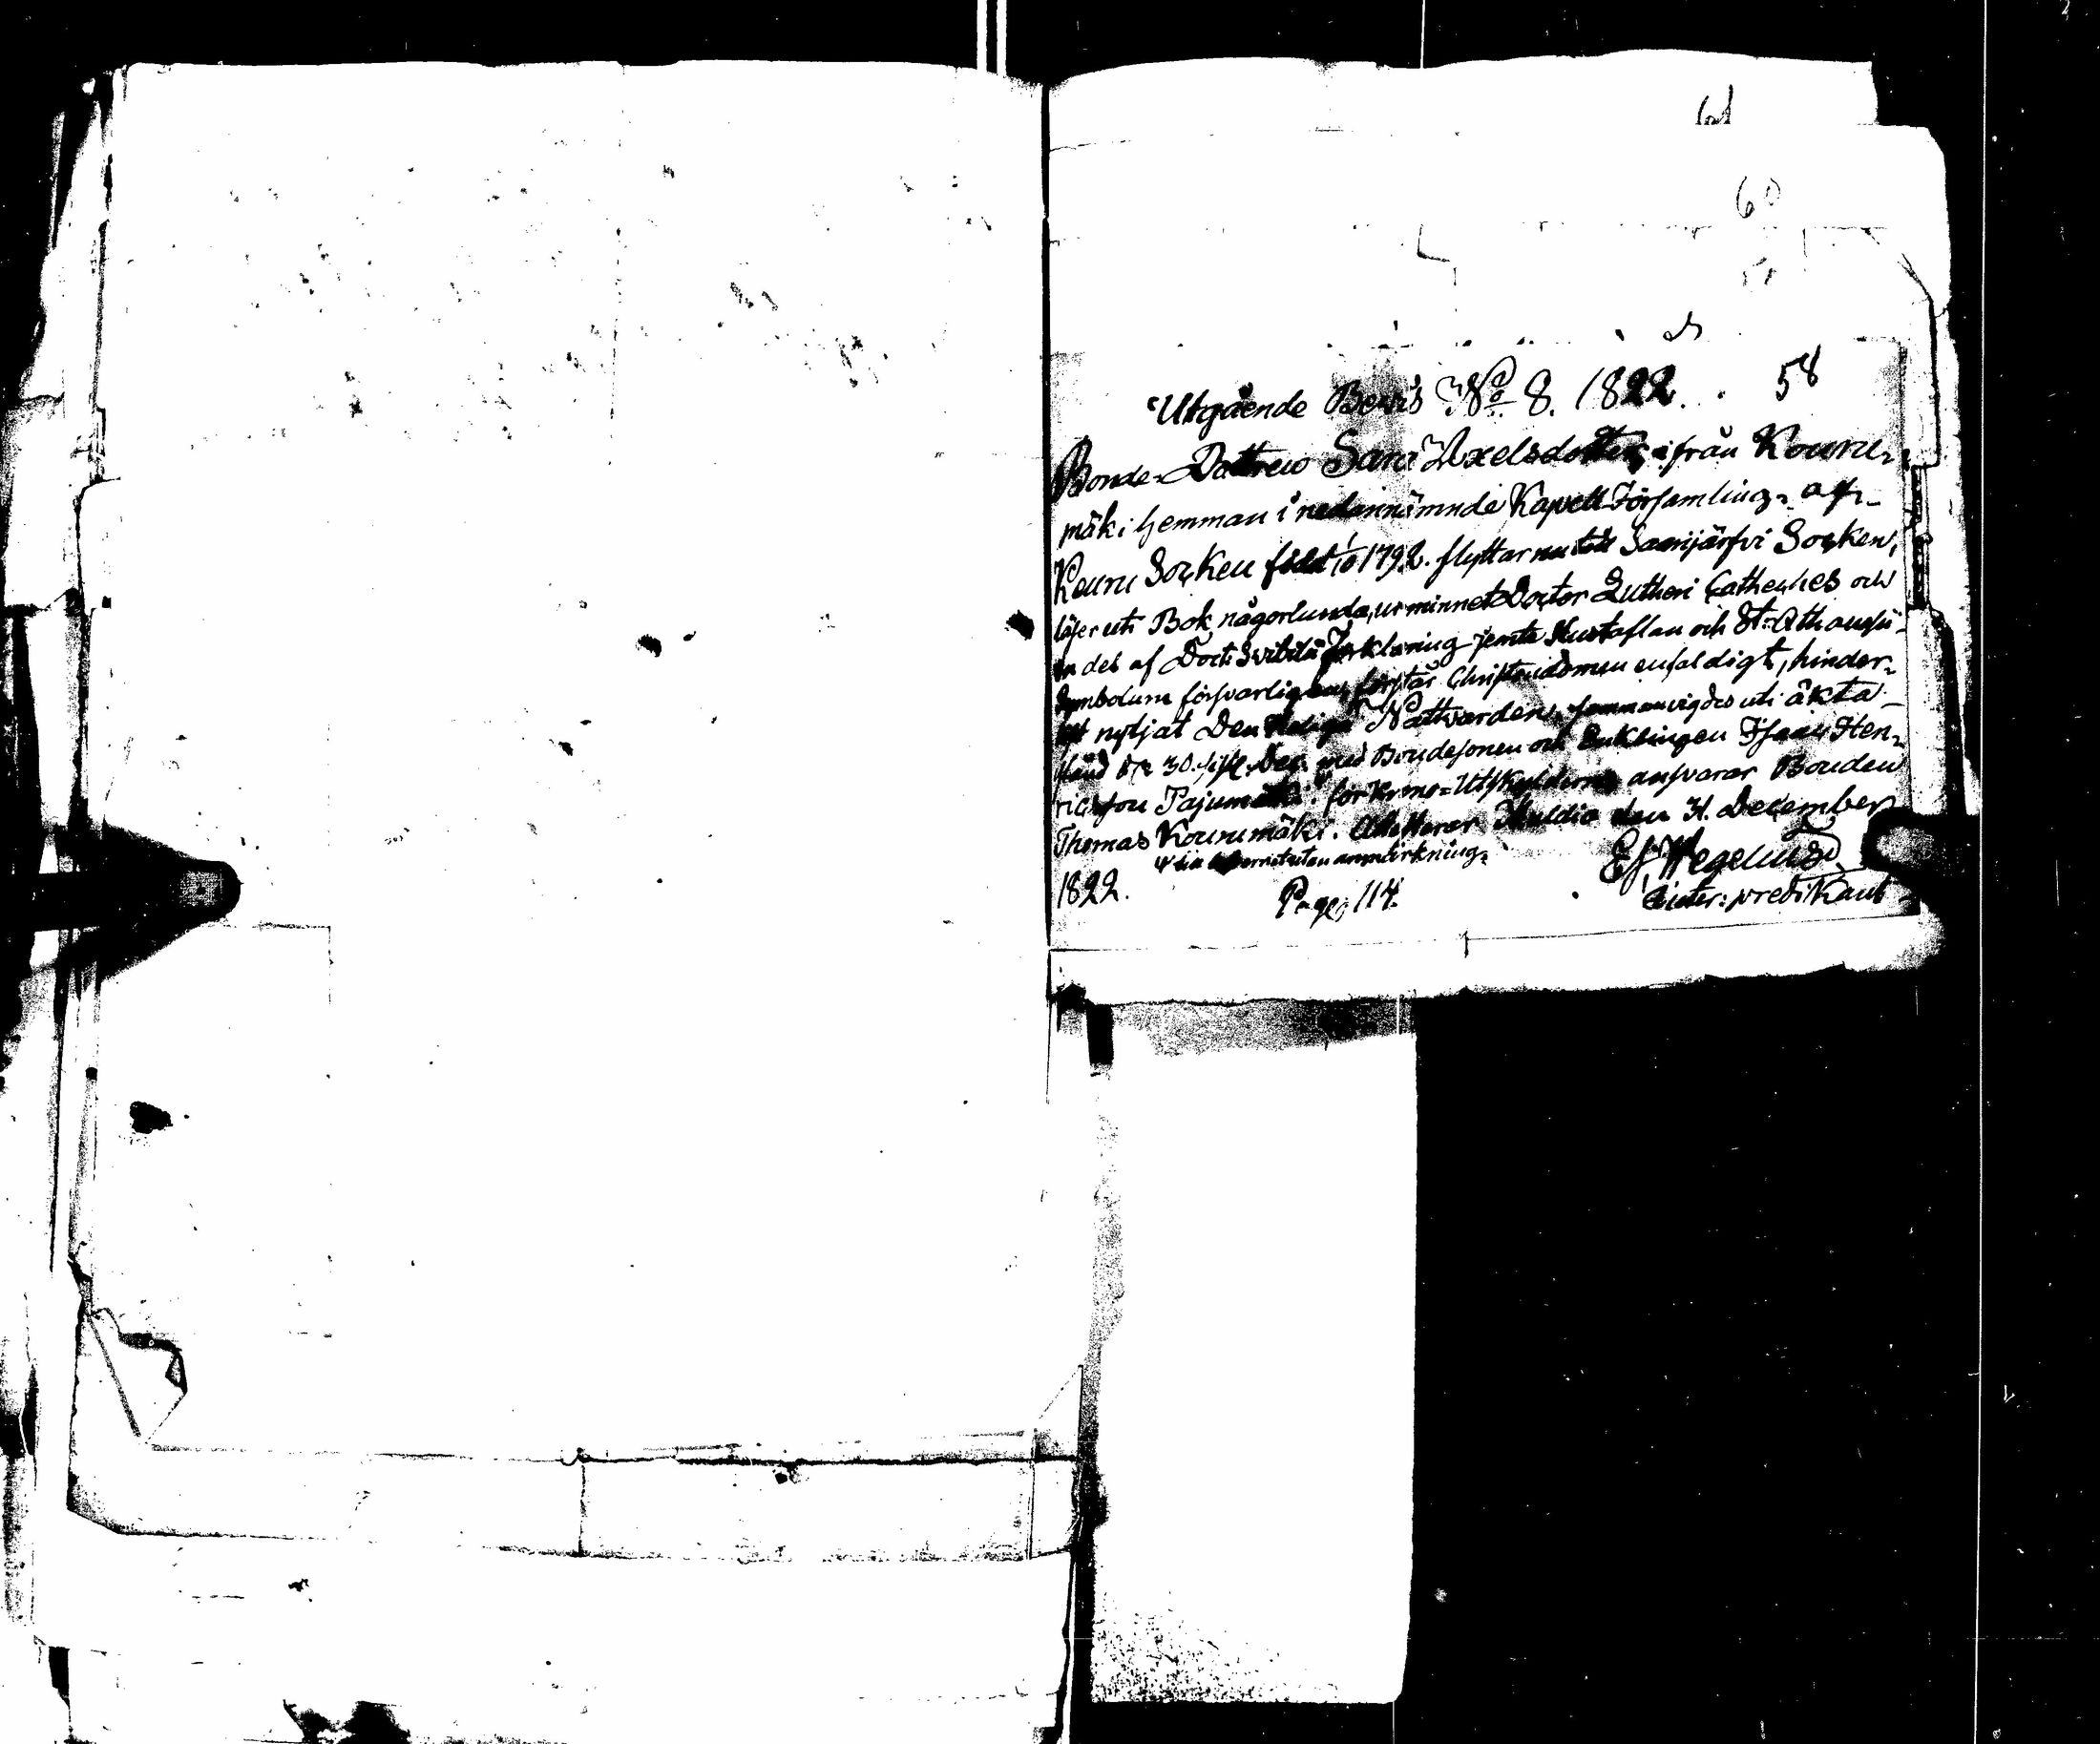 61
60
Utgående Bewis No 8. 1822. 58
Bonde-Dottren Sara Axelsdotter ifrån Kouru-
mäki hemman i nedannämnde Kapell Församling af
Keuru Socken född 1/10 1792. flyttar nu till Saarijärfvi Socken,
läser uti Bok någorlunda, ur minnet Doctor Lutheri Catheches och
en del af Doct: Svibelii Förklaring jemte Hustaflan och St: Athanasii
Symbolum försvarligen, förstår Christendomen enfaldigt, hinder-
nytjat Den Heliga Nattvarden, sammanvigdes uti äkta
stånd 30. med Bondesonen och Enklingen Isaac Hen-
ricsson Pajumäki. för Krono-Utskylderne ansvarar Bonden
Thomas Kourumäki. Attesterar Multia den 31. December
utan anmärkning.
1822. Page, 114. Wegelius
predikant